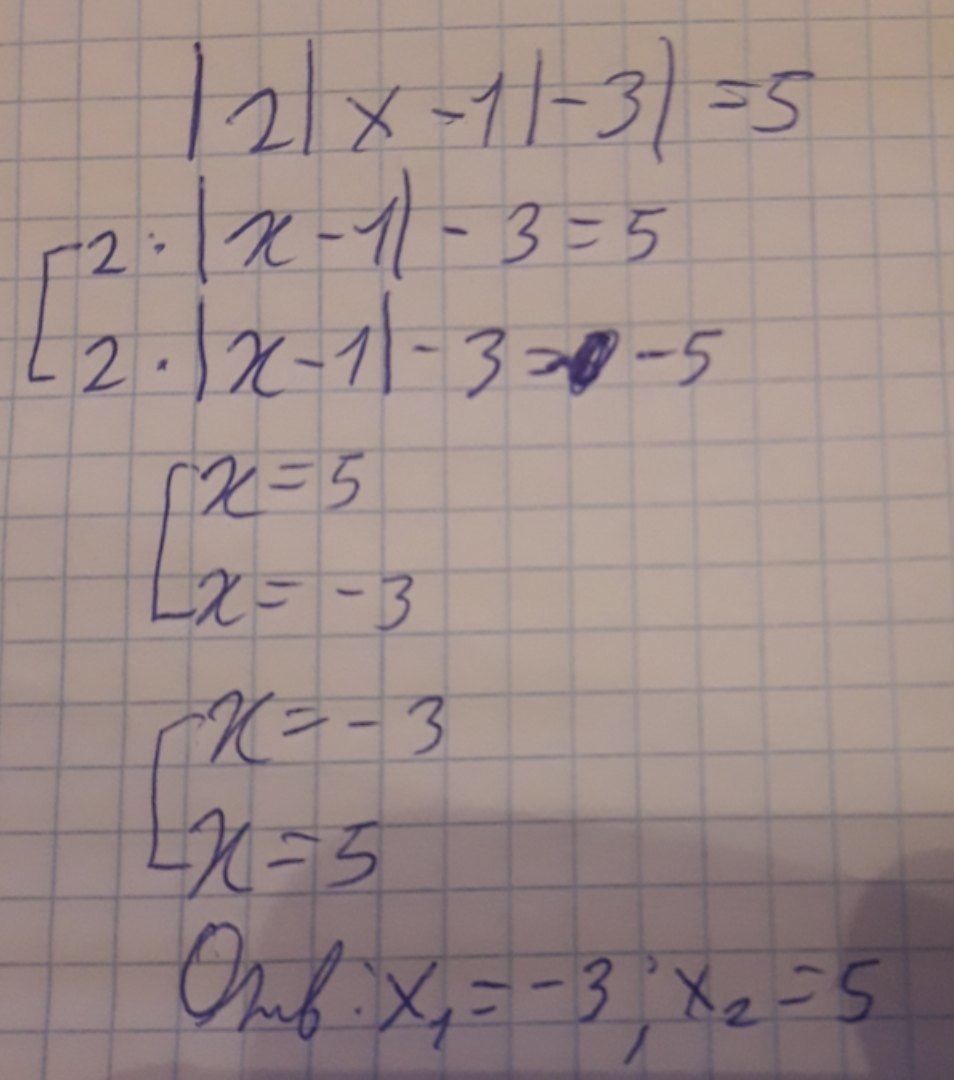 |2|x-1|-3|=5
2·|x-1|-3=5
2·|x-1|-3=-5
x=5
x=-3
x=-3
x=5
Отв: x₁=-3; x₂=5